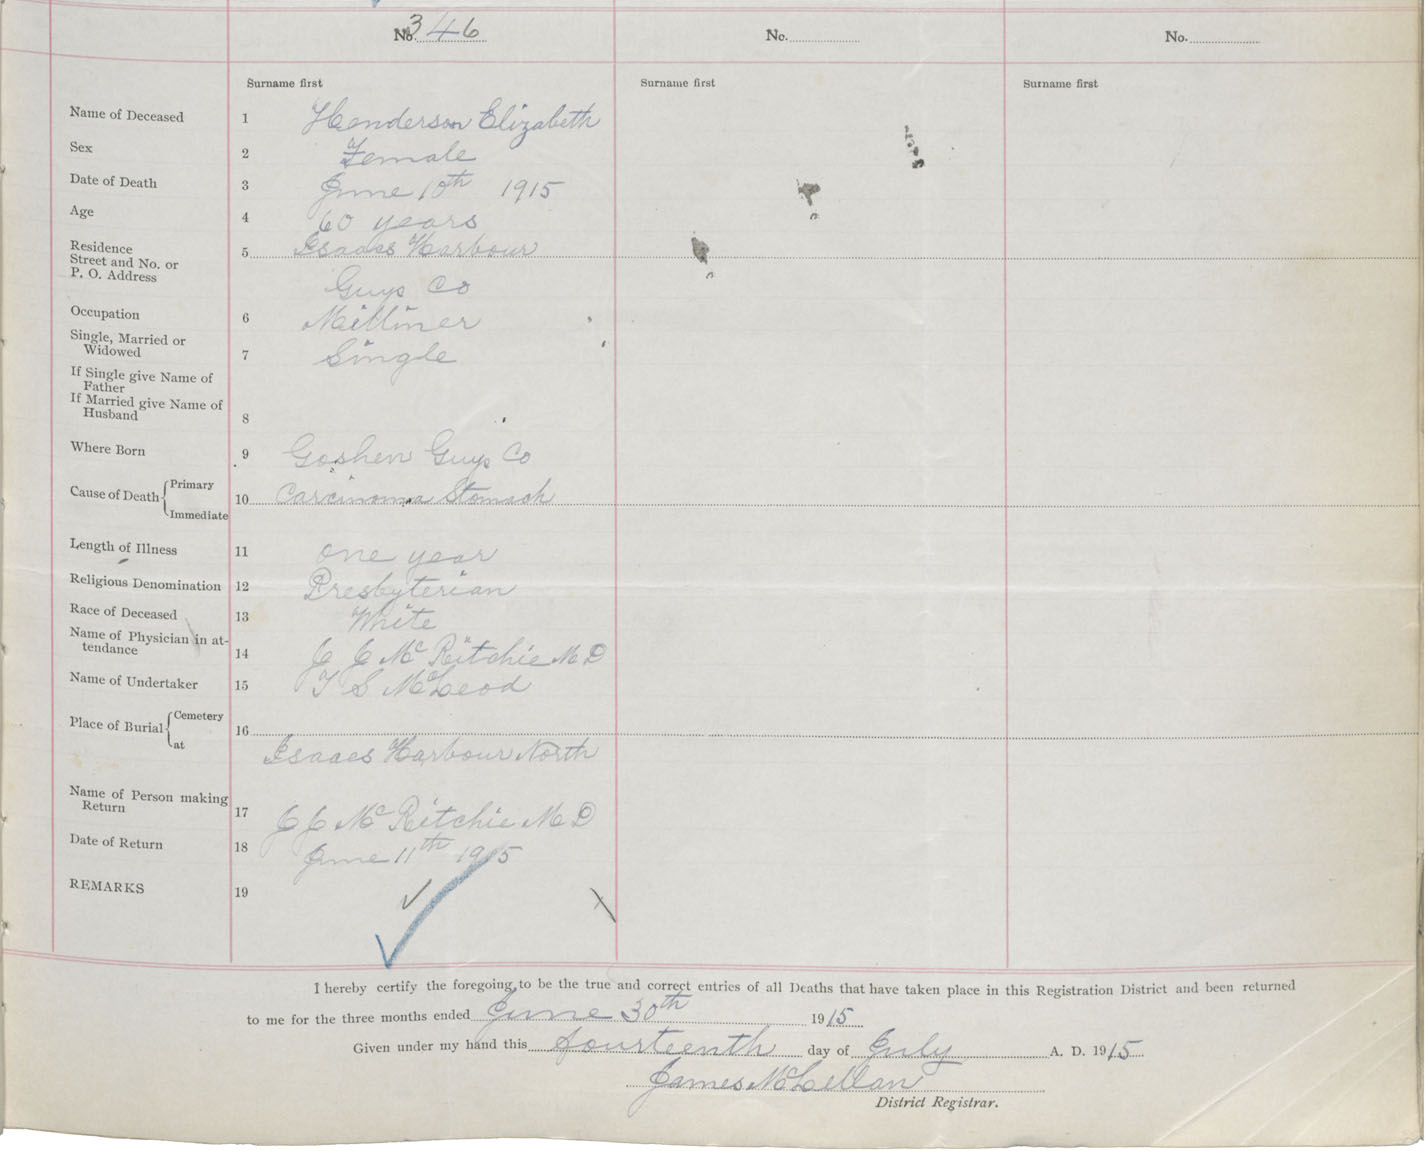 No. 346 No. No.
Surname first Surname first Surname first
Name of Deceased 1 Henderson Elizabeth
Sex 2 Female
Date of Death 3 June 10th 1915
Age 4 60 years
Residence
Street and No. or
P. O. Address 5 Isaacs Harbour
Guys Co
Occupation 6 Milliner
Single, Married or
Widowed 7 Single
If Single give Name of
Father
If Married give Name of
Husband 8
Where Born 9 Goshen Guys Co
Cause of Death Primary
10 Carcinoma Stomach
Immediate
Length of Illness 11 one year
Religious Denomination 12 Presbyterian
Race of Deceased 13 White
Name of Physician in at-
tendance 14 J J McRitchie M D
Name of Undertaker 15 T S McLeod
Place of Burial Cemetery
at 16
Isaacs Harbour North
Name of Person making
Return 17 J J McRitchie M D
Date of Return 18 June 11th 1915
REMARKS 19
I hereby certify the foregoing to be the true and correct entries of all Deaths that have taken place in this Registration District and been returned
to me for the three months ended June 30th 1915
Given under my hand this fourteenth day of July A. D. 1915
James McLellan
District Registrar.